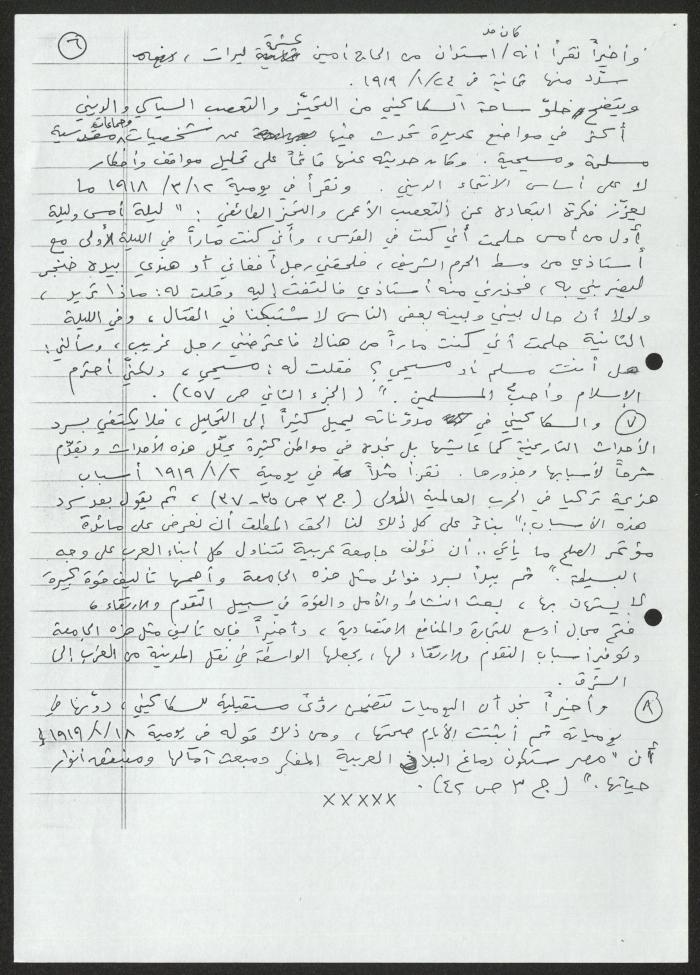 ٦
كان قد
وأخيراً نقرأ أنه / استدان من الحاج أمين عشرة ليرات ،
سدّد منها ثمانية في ١٩١٩/١/٢٤ .
ويتضح خلوّ ساحة السكاكيني من التحيّز والتعصب السياسي والديني
أكثر في مواضع عديدة تحدث فيها عن شخصيات وجماعات مقدسية
مسلمة ومسيحية . وكان حديثه عنها قائماً على تحليل مواقف وأفكار
لا على أساس الانتماء الديني . ونقرأ في يومية ١٩١٨/٣/١٢ ما
يعزّز فكرة ابتعاده عن التعصب الأعمى والتحيز الطائفي : " ليلة أمس وليلة
أول من أمس حلمت أني كنت في القدس ، وأني كنت ماراً في الليلة الأولى مع
أستاذي من وسط الحرم الشريف ، فلحقني رجل أفغاني أو هندي بيده خنجر
ليضربني به ، فحذرني منه أستاذي فالتفت إليه وقلت له : ماذا تريد ،
ولولا أن حال بيني وبينه بعض الناس لاشتبكنا في القتال ، وفي الليلة
الثانية حلمت أني كنت ماراً من هناك فاعترضني رجل غريب ، وسألني :
هل أنت مسلم أو مسيحي ؟ فقلت له : مسيحي ، ولكنّي أحترم
الإسلام وأحب المسلمين . " ( الجزء الثاني ص ٢٥٧ ) .
٧ والسكاكيني في مدوّناته يميل كثيراً إلى التحليل ، فلا يكتفي بسرد
الأحداث التاريخية كما عايشها بل نجده في مواطن كثيرة يحلّل هذه الأحداث ويقدّم
شرحاً لأسبابها وجذورها . نقرأ مثلاً في يومية ١٩١٩/١/٢ أسباب
هزيمة تركيا في الحرب العالمية الأولى ( ج ٣ ص ٣٥ - ٣٧ ) ، ثم يقول بعد سرد
هذه الأسباب : " بناءً على كل ذلك لنا الحق المطلق أن نعرض على مائدة
مؤتمر الصلح ما يأتي .. أن نؤلف جامعة عربية تتناول كل أبناء العرب على وجه
البسيطة . " ثم يبدأ بسرد فوائد مثل هذه الجامعة وأهمها تأليف قوة كبيرة
لا يستهان بها ، بعث النشاط والأمل والقوة في سبيل التقدم والارتقاء ،
فتح مجال أوسع للتجارة والمنافع الاقتصادية ، وأخيراً فإن تأليف مثل هذه الجامعة
وتوفير أسباب التقدم والارتقاء لها ، يجعلها الواسطة في نقل المدنية من الغرب إلى
الشرق .
٨ وأخيراً نجد أن اليوميات تتضمن رؤى مستقبلية للسكاكيني ، دوّنها في
يومياته ثم أثبتت الأيام صحتها ، ومن ذلك قوله في يومية ١٩١٩/٨/١٨
أن " مصر ستكون دماغ البلاد العربية المفكر ومبعث آمالها ومنبثق أنوار
حياتها . " ( ج ٣ ص ٤٢ ) .
×××××